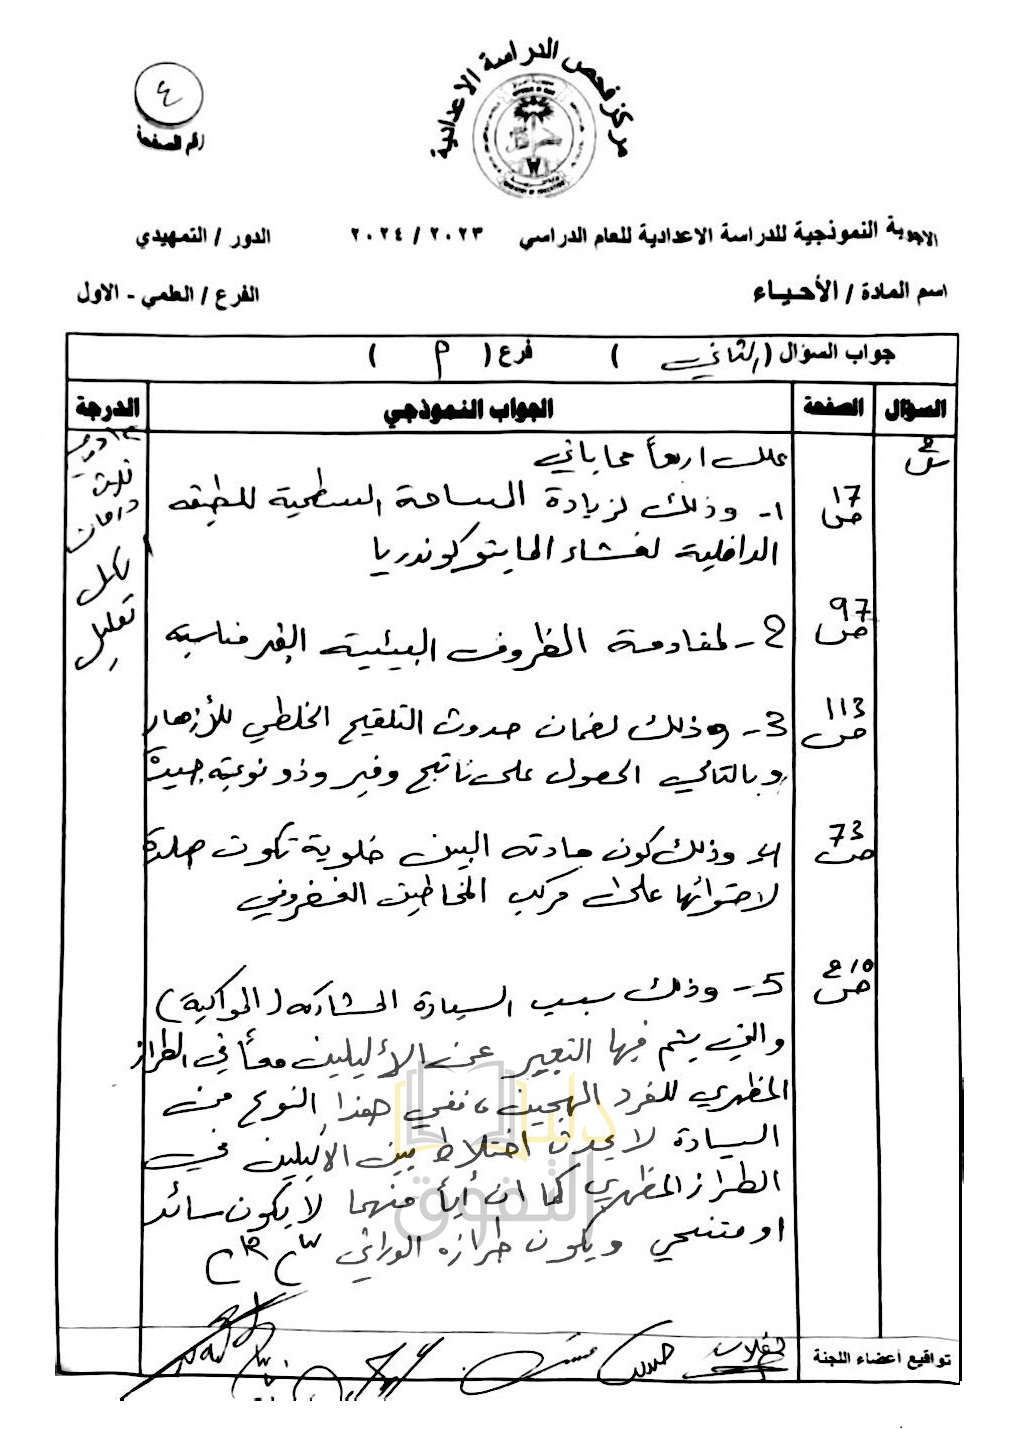 مركز فحص الدراسة الاعدادية
٤
رقم الصفحة
الاجوبة النموذجية للدراسة الاعدادية للعام الدراسي ٢٠٢٣ / ٢٠٢٤ الدور / التمهيدي
اسم المادة / الأحياء الفرع / العلمي - الاول
جواب السؤال ( الثاني ) فرع ( م )
السؤال الصفحة الجواب النموذجي الدرجة
علل اربعاً مما يأتي
ثلاث درجات لكل تعليل
ص 17 1- وذلك لزيادة المساحة السطحية للطبقه
الداخلية لغشاء المايتوكوندريا
ص 97 2- لمقاومة الظروف البيئية الغير مناسبه
ص 113 3- وذلك لضمان حدوث التلقيح الخلطي للأزهار
وبالتالي الحصول على ناتج وفير وذو نوعية جيدة
ص 73 4- وذلك كون مادته البين خلوية تكون صلدة
لاحتوائها على مركب المخاطين الغضروني
ص 210 5- وذلك بسبب السيادة المشاركه (المواكبة)
والتي يتم فيها التعبير عن الأليلين معاً في الطراز
المظهري للفرد الهجين، ففي هذا النوع من
السيادة لا يحدث اختلاط بين الأليلين في
الطراز المظهري كما ان أياً منهما لا يكون سائد
او متنحي ويكون طرازه الوراثي
دنيا التفوق
تواقيع أعضاء اللجنة